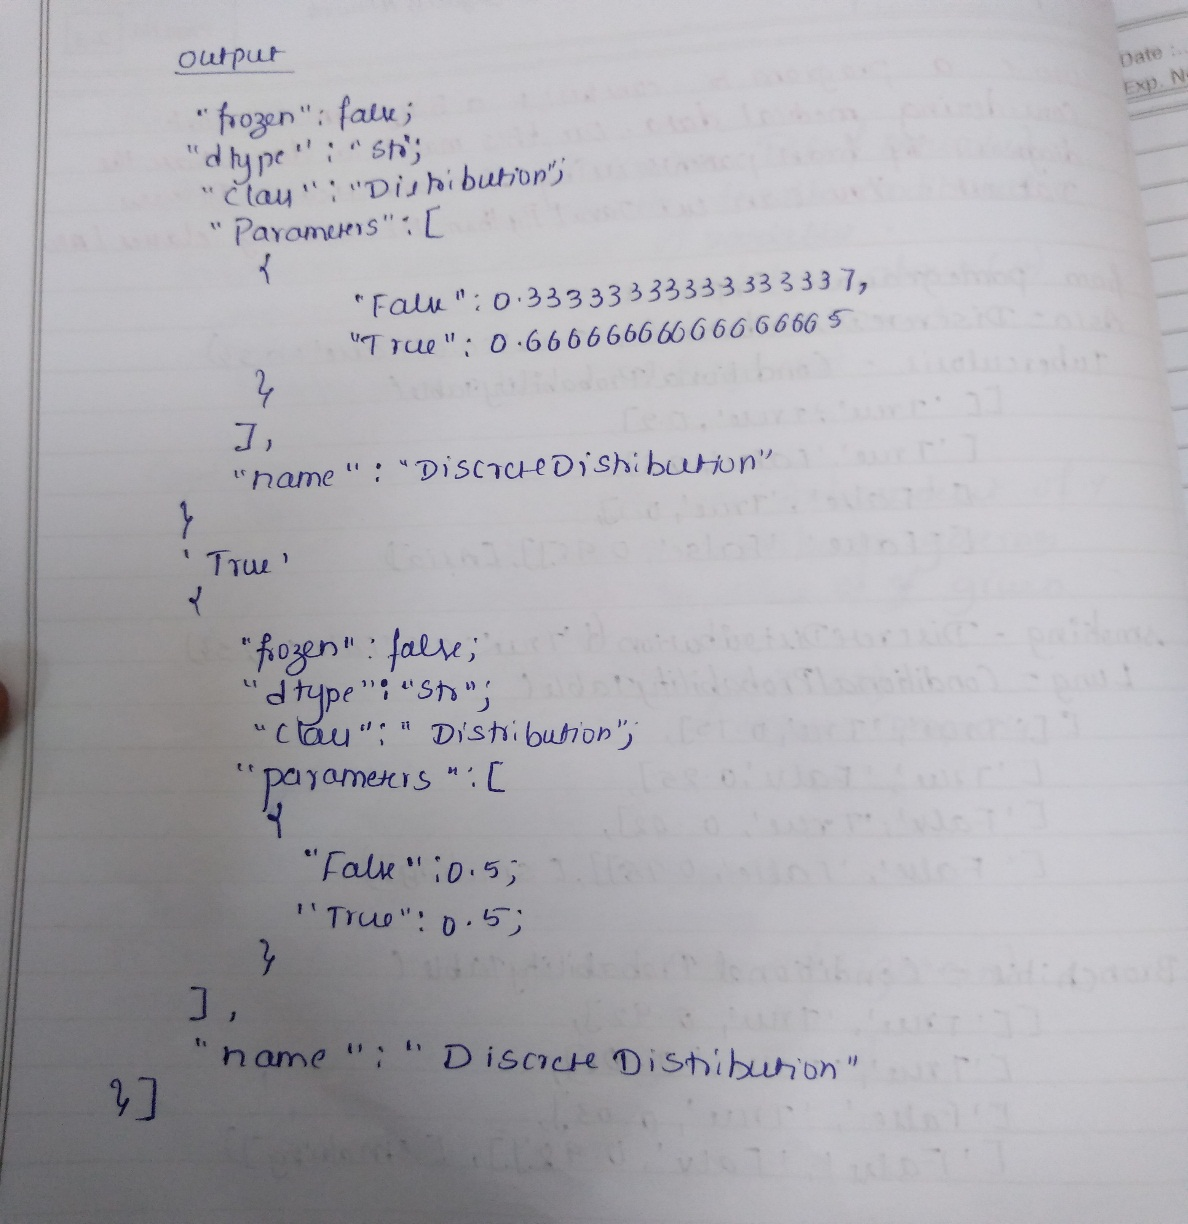 Output
"frozen": false;
"dtype": "str";
"class": "Distribution";
"Parameters": [
{
"False": 0.3333333333333337,
"True": 0.6666666666666665
}
],
"name": "DiscreteDistribution"
}
'True'
{
"frozen": false;
"dtype": "str";
"class": "Distribution";
"parameters": [
{
"False": 0.5;
"True": 0.5;
}
],
"name": "Discrete Distribution"
}]
Date :..
Exp. N